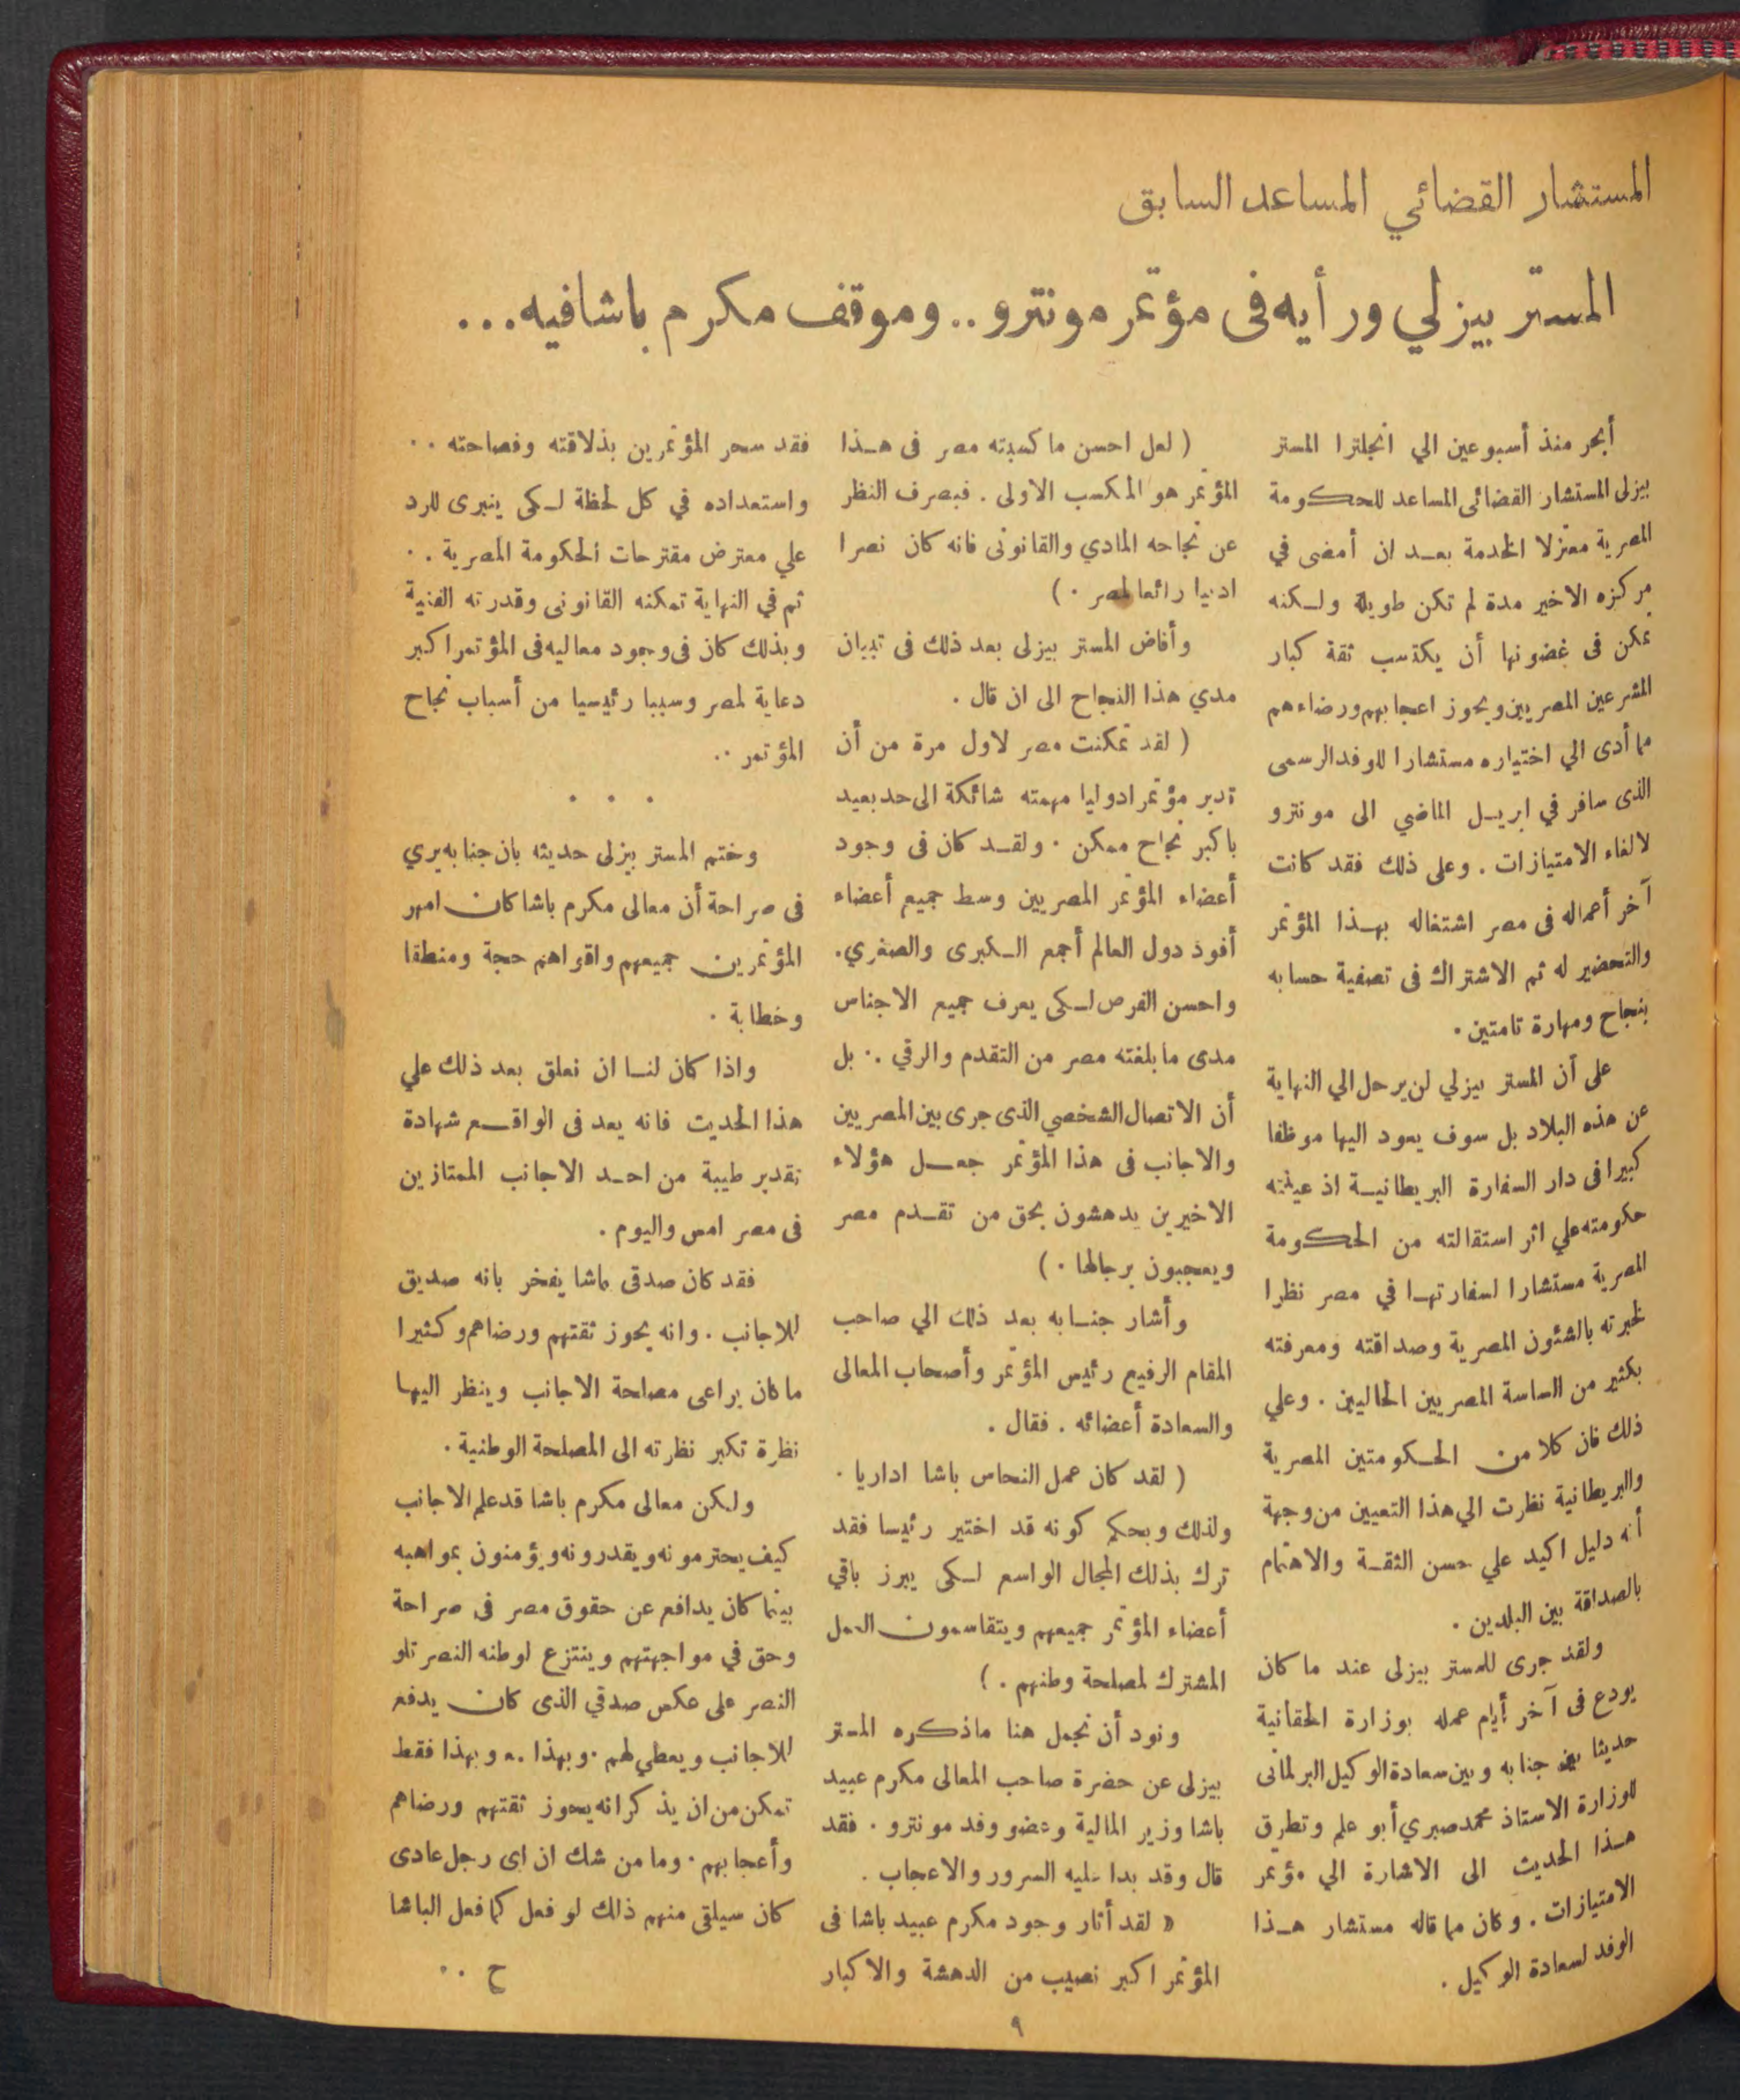 المستشار القضائي المساعد السابق
المستر بيزلي ورأيه فى مؤتمر مونترو .. وموقف مكرم باشا فيه ...
أبحر منذ أسبوعين الي انجلترا المستر
بيزلى المستشار القضائى المساعد للحكومة
المصرية معتزلا الخدمة بعد ان أمضى في
مركزه الاخير مدة لم تكن طويلة ولكنه
تمكن فى غضونها أن يكتسب ثقة كبار
المشرعين المصريين ويحوز اعجابهم ورضاءهم
مما أدى الي اختياره مستشارا للوفد الرسمى
الذى سافر في ابريل الماضي الى مونترو
لالغاء الامتيازات . وعلى ذلك فقد كانت
آخر أعماله فى مصر اشتغاله بهذا المؤتمر
والتحضير له ثم الاشتراك فى تصفية حسابه
بنجاح ومهارة تامتين .
على أن المستر بيزلي لن يرحل الي النهاية
عن هذه البلاد بل سوف يعود اليها موظفا
كبيرا فى دار السفارة البريطانية اذ عينته
حكومته علي اثر استقالته من الحكومة
المصرية مستشارا لسفارتها في مصر نظرا
لخبرته بالشئون المصرية وصداقته ومعرفته
بكثير من الساسة المصريين الحاليين . وعلي
ذلك فان كلا من الحكومتين المصرية
والبريطانية نظرت الي هذا التعيين من وجهة
أنه دليل اكيد علي حسن الثقة والاهتمام
بالصداقة بين البلدين .
ولقد جرى للمستر بيزلى عند ما كان
يودع فى آخر أيام عمله بوزارة الحقانية
حديثا بين جنابه وبين سعادة الوكيل البرلمانى
للوزارة الاستاذ محمد صبري أبو علم وتطرق
هذا الحديث الى الاشارة الي مؤتمر
الامتيازات . وكان مما قاله مستشار هذا
الوفد لسعادة الوكيل .
( لعل احسن ما كسبته مصر فى هذا
المؤتمر هو المكسب الاولى . فبصرف النظر
عن نجاحه المادي والقانونى فانه كان نصرا
ادبيا رائعا لمصر . )
وأفاض المستر بيزلى بعد ذلك فى تبيان
مدي هذا النجاح الى ان قال .
( لقد تمكنت مصر لاول مرة من أن
تدبر مؤتمرا دوليا مهمته شائكة الى حد بعيد
باكبر نجاح ممكن . ولقد كان فى وجود
أعضاء المؤتمر المصريين وسط جميع أعضاء
أفوذ دول العالم أجمع الكبرى والصغري .
واحسن الفرص لكى يعرف جميع الاجناس
مدى ما بلغته مصر من التقدم والرقي .. بل
أن الاتصال الشخصي الذى جرى بين المصريين
والاجانب فى هذا المؤتمر جعل هؤلاء
الاخيرين يدهشون بحق من تقدم مصر
ويعجبون برجالها . )
وأشار جنابه بعد ذلك الي صاحب
المقام الرفيع رئيس المؤتمر وأصحاب المعالى
والسعادة أعضائه . فقال .
( لقد كان عمل النحاس باشا اداريا .
ولذلك وبحكم كونه قد اختير رئيسا فقد
ترك بذلك المجال الواسع لكى يبرز باقي
أعضاء المؤتمر جميعهم ويتقاسمون العمل
المشترك لمصلحة وطنهم . )
ونود أن نجمل هنا ماذكره المستر
بيزلى عن حضرة صاحب المعالى مكرم عبيد
باشا وزير المالية وعضو وفد مونترو . فقد
قال وقد بدا عليه السرور والاعجاب .
« لقد أثار وجود مكرم عبيد باشا فى
المؤتمر اكبر نصيب من الدهشة والاكبار
فقد سحر المؤتمرين بذلاقته وفصاحته ..
واستعداده في كل لحظة لكى ينبرى للرد
علي معترض مقترحات الحكومة المصرية ..
ثم في النهاية تمكنه القانونى وقدرته الفنية
وبذلك كان فى وجود معاليه فى المؤتمر اكبر
دعاية لمصر وسببا رئيسيا من أسباب نجاح
المؤتمر ..
. . .
وختم المستر بيزلى حديثه بان جنابه يري
فى صراحة أن معالى مكرم باشا كان امهر
المؤتمرين جميعهم واقواهم حجة ومنطقا
وخطابة .
واذا كان لنا ان نعلق بعد ذلك علي
هذا الحديث فانه يعد فى الواقع شهادة
تقدير طيبة من احد الاجانب الممتازين
فى مصر امس واليوم .
فقد كان صدقى باشا يفخر بانه صديق
للاجانب . وانه يحوز ثقتهم ورضاهم وكثيرا
ما كان يراعى مصلحة الاجانب وينظر اليها
نظرة تكبر نظرته الى المصلحة الوطنية .
ولكن معالى مكرم باشا قد علم الاجانب
كيف يحترمونه ويقدرونه ويؤمنون بمواهبه
بينما كان يدافع عن حقوق مصر فى صراحة
وحق في مواجهتهم وينتزع لوطنه النصر تلو
النصر على عكس صدقي الذى كان يدفع
للاجانب ويعطي لهم . وبهذا .. وبهذا فقط
تمكن من ان يذكر انه يحوز ثقتهم ورضاهم
وأعجابهم . وما من شك ان اى رجل عادى
كان سيلقى منهم ذلك لو فعل كما فعل الباشا
ح ..
٩